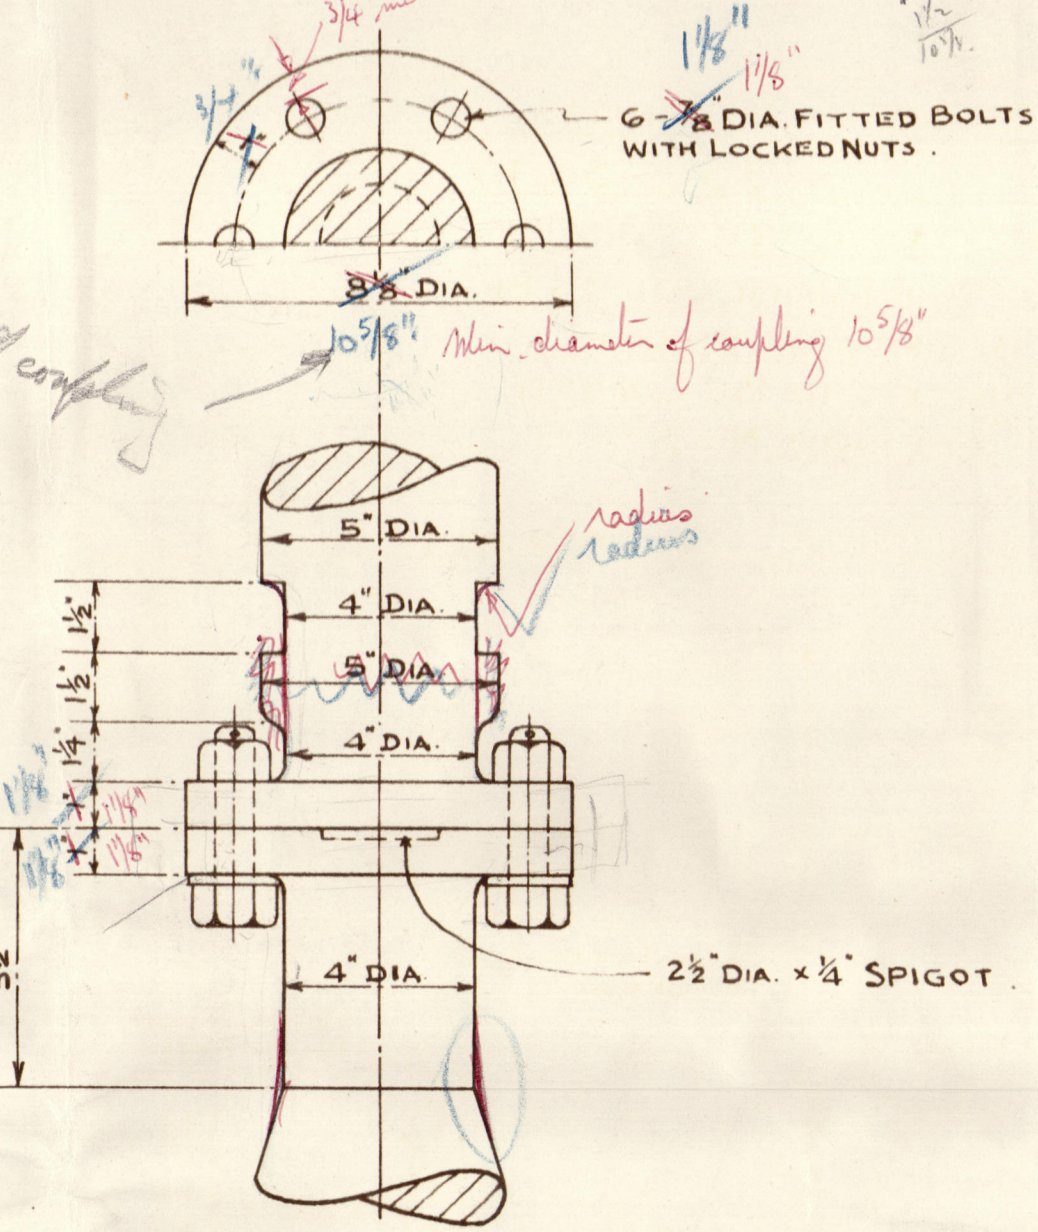 3/4
1 1/8"
1 1/2
3/4"
1 1/8"
1"
6 - 7/8" DIA. FITTED BOLTS
WITH LOCKED NUTS.
8 1/8" DIA.
10 5/8"
Min. diameter of coupling 10 5/8"
coupling
5" DIA.
radius
radius
1 1/2"
4" DIA.
1 1/2"
5" DIA.
1 1/4"
4" DIA.
1 1/8" 1" 1 1/8"
1 1/8" 1" 1 1/8"
4" DIA
2 1/2" DIA. x 1/4" SPIGOT.